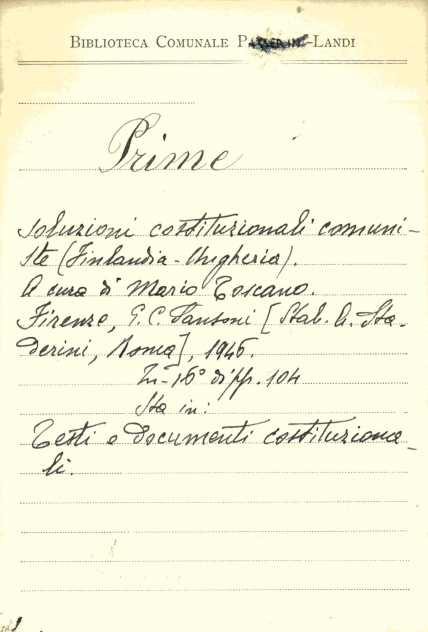 BIBLIOTECA COMUNALE PASSERINI-LANDI
Prime
soluzioni costituzionali comuni-
ste (Finlandia-Ungheria).
A cura di Mario Toscano.
Firenze, G. C. Sansoni [Stab. A. Sta-
derini, Roma], 1946.
In-16° di pp. 104
Sta in:
Testi e documenti costituziona-
li.